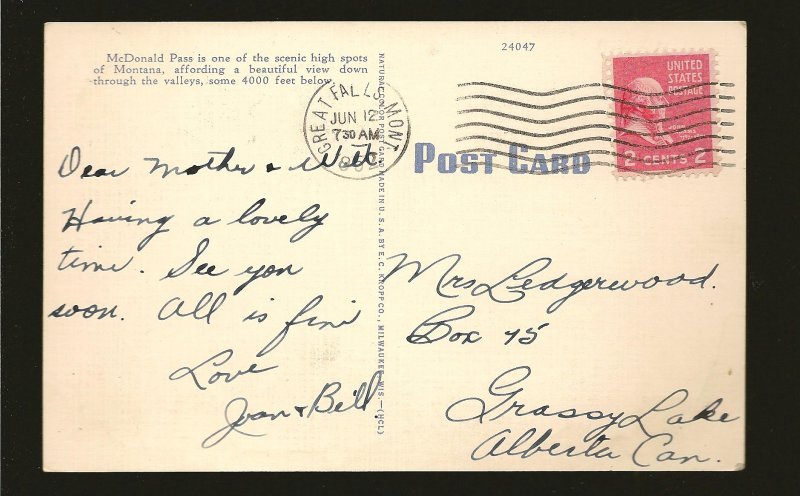 24047
McDonald Pass is one of the scenic high spots
of Montana, affording a beautiful view down
through the valleys, some 4000 feet below.
GREAT FALLS MONT
JUN 12
7 30 AM
UNITED
STATES
POSTAGE
2 CENTS 2
POST CARD
NATURAL COLOR POST CARD MADE IN U. S. A. BY E. C. KROPP CO., MILWAUKEE, WIS.—(HCL)
Dear Mother &
Having a lovely
time. See you
soon. All is fine
Love
Joan & Bill
Mrs Ledgerwood.
Box 45
Grassy Lake
Alberta Can.